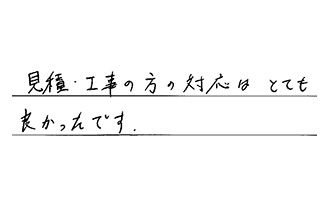 見積・工事の方の対応は とても
良かったです.